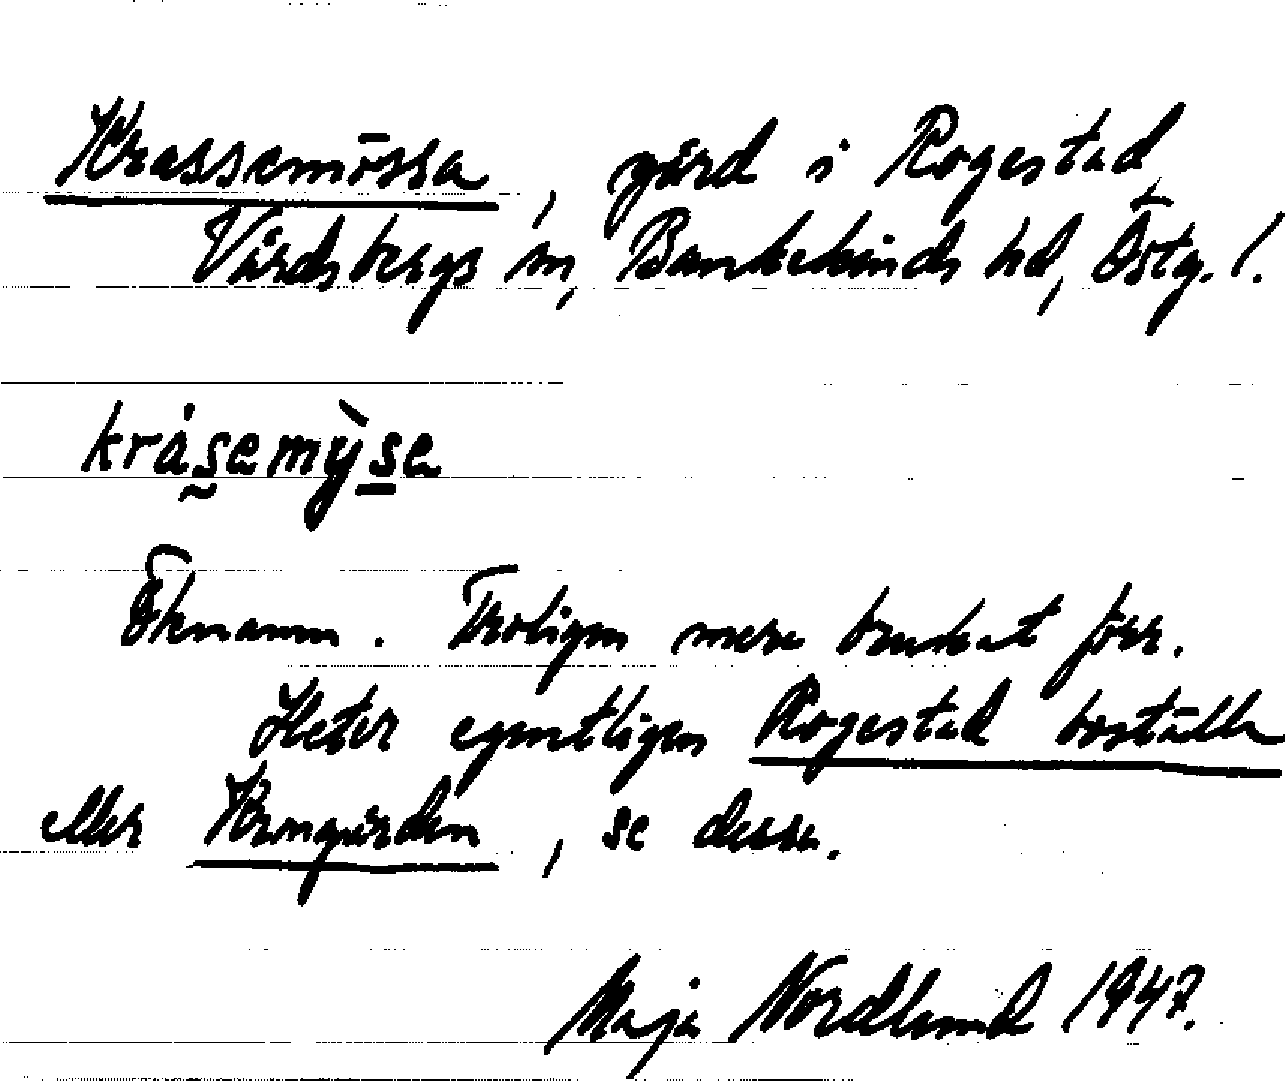 Krassemössa, gård i Rogestad
Vårdsbergs sn, Bankekinds hd, Östg. l.
kråsemỳse
Öknamn. Troligen mera brukat förr.
Heter egentligen Rogestad boställe
eller Krongården, se dessa.
Maja Nordlund 1947.